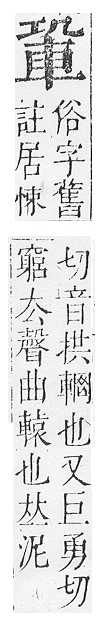 俗字舊
註居悚
切音拱輞也又巨勇切
窮厺聲曲轅也𠀤泥